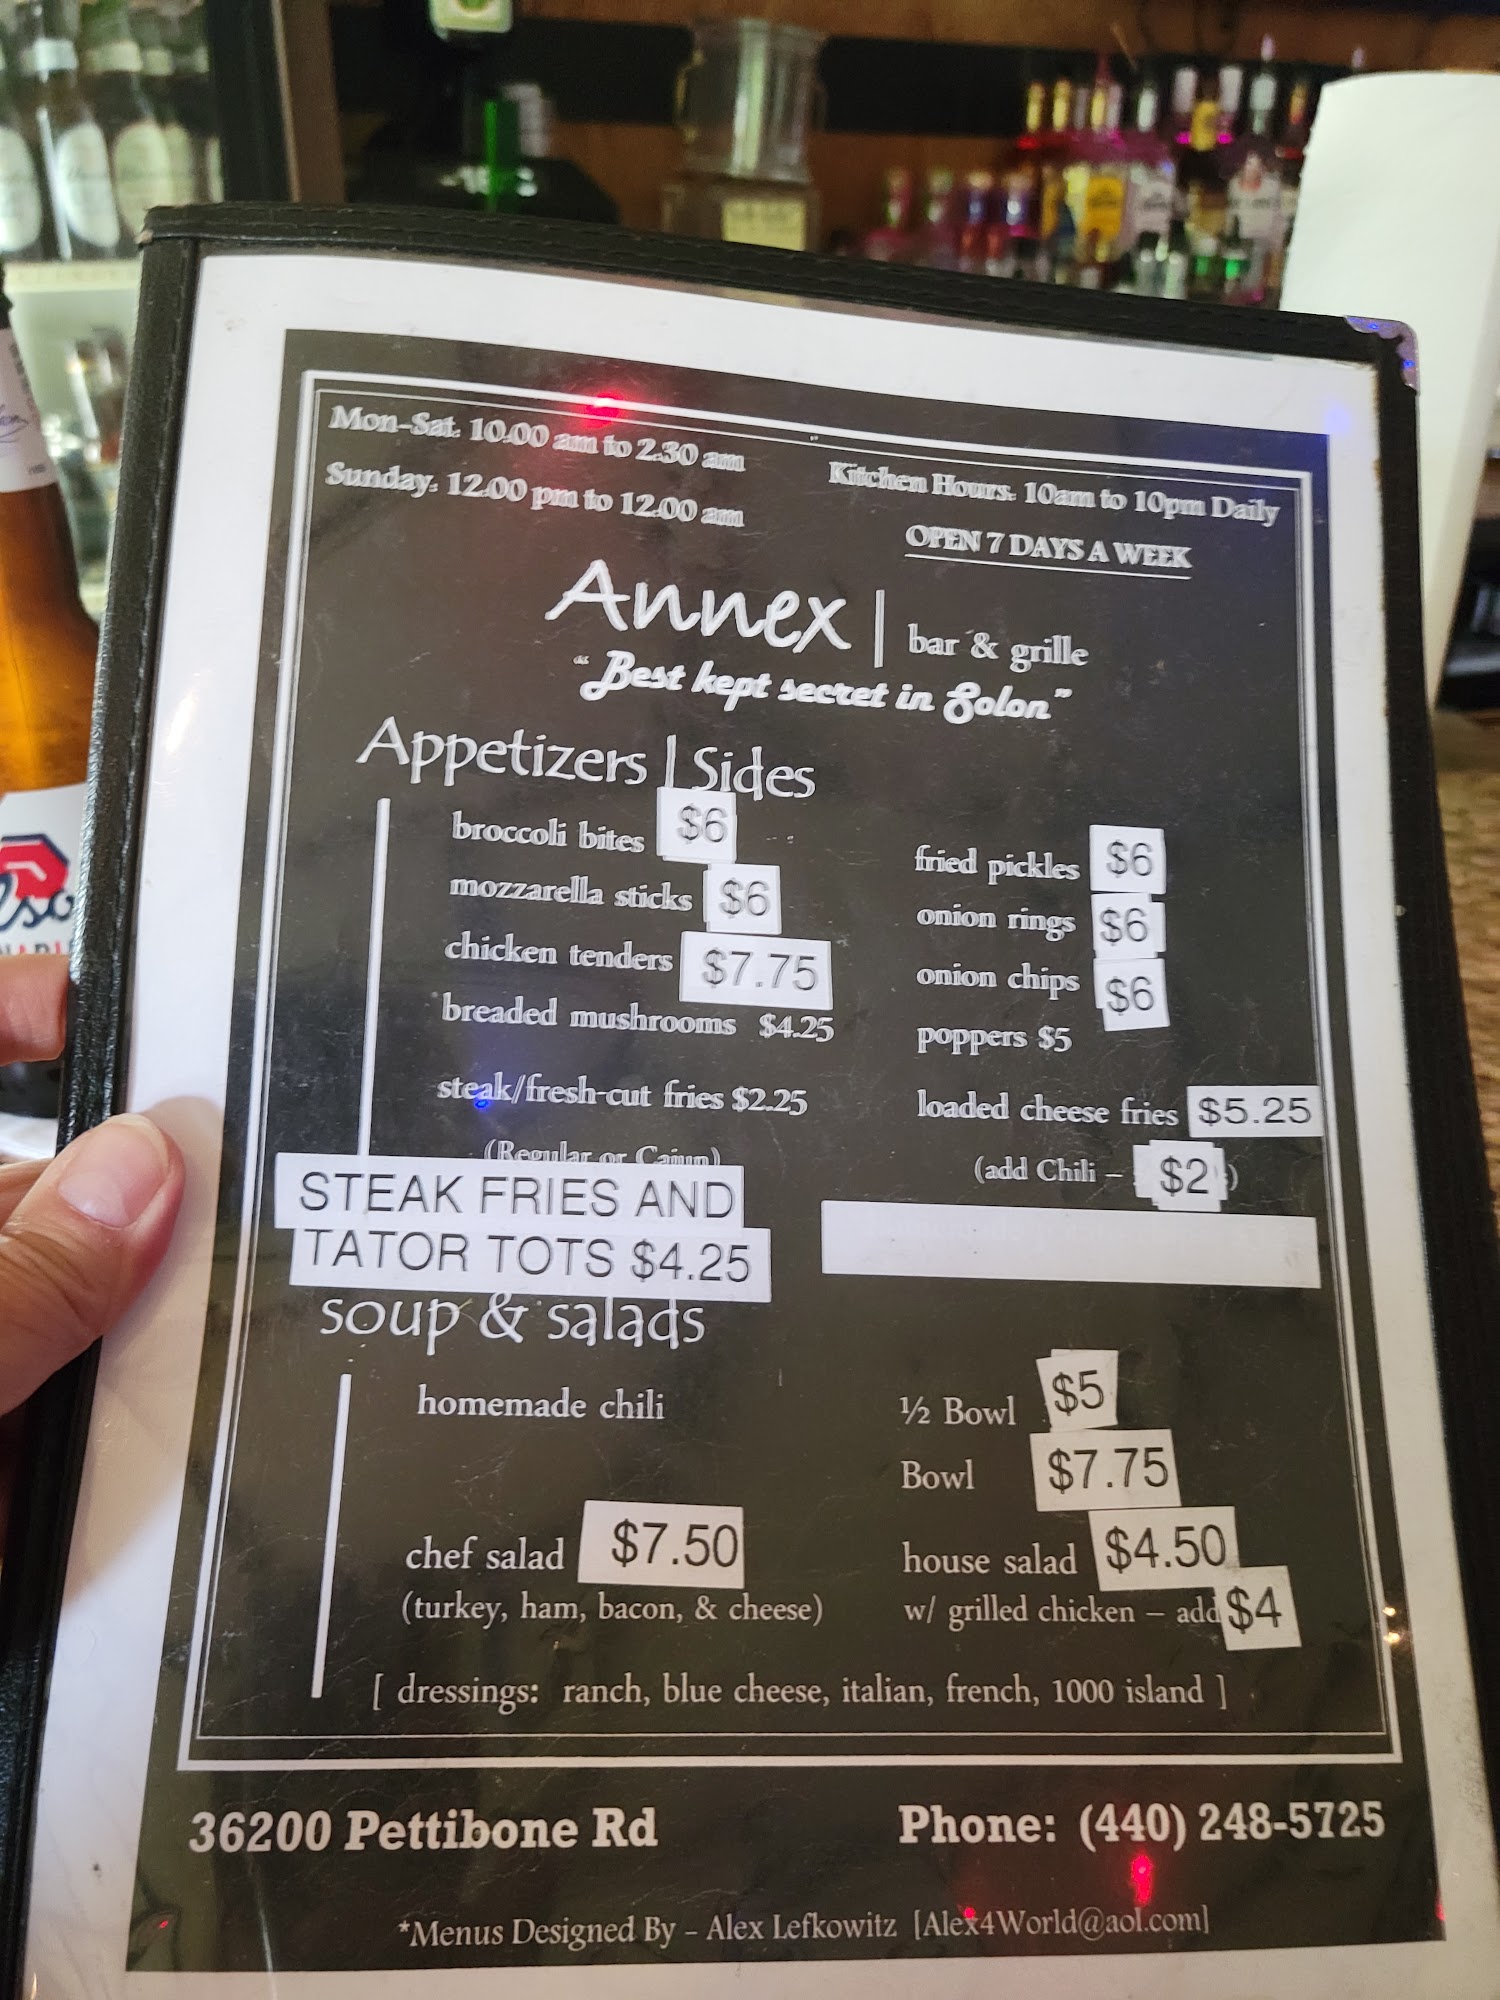 Mon-Sat: 10:00 am to 2:30 am
Sunday: 12:00 pm to 12:00 am
Kitchen Hours: 10am to 10pm Daily
OPEN 7 DAYS A WEEK
Annex | bar & grille
"Best kept secret in Solon"
Appetizers | Sides
broccoli bites $6
mozzarella sticks $6
chicken tenders $7.75
breaded mushrooms $4.25
steak/fresh-cut fries $2.25
(Regular or Cajun)
STEAK FRIES AND
TATOR TOTS $4.25
fried pickles $6
onion rings $6
onion chips $6
poppers $5
loaded cheese fries $5.25
(add Chili – $2)
soup & salads
homemade chili
½ Bowl $5
Bowl $7.75
chef salad $7.50
(turkey, ham, bacon, & cheese)
house salad $4.50
w/ grilled chicken – add $4
[ dressings: ranch, blue cheese, italian, french, 1000 island ]
36200 Pettibone Rd
Phone: (440) 248-5725
*Menus Designed By - Alex Lefkowitz [Alex4World@aol.com]